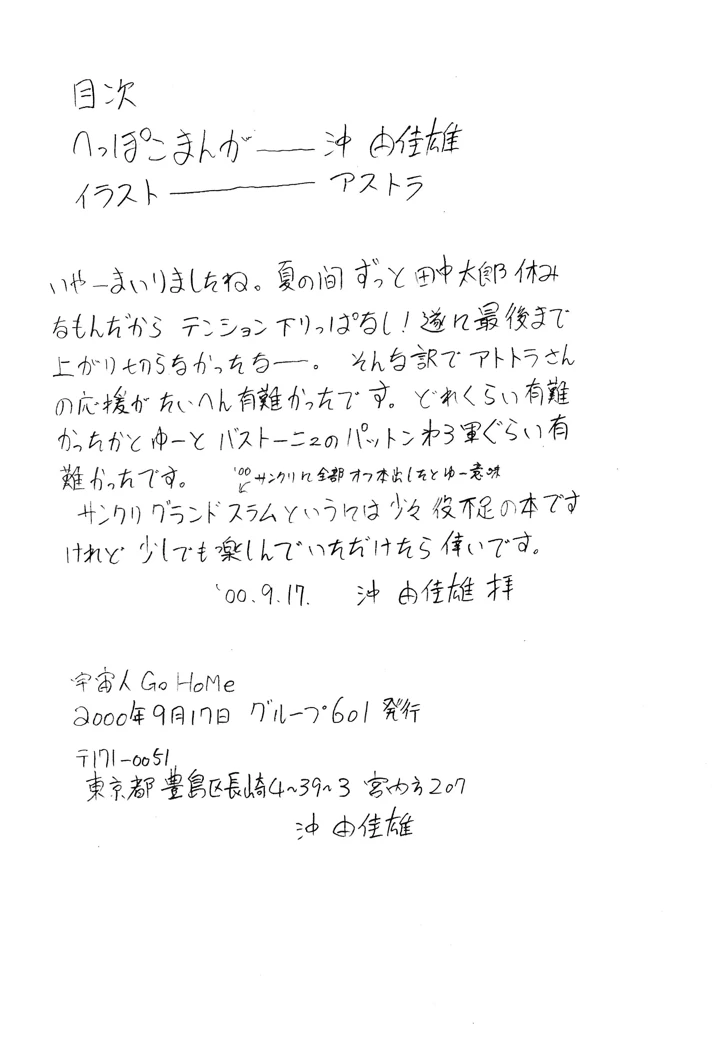 目次
へっぽこまんが――沖 由佳雄
イラスト――――アストラ
いやーまいりましたね。夏の間 ずっと 田中太郎 休み
なもんだから テンション下りっぱなし！遂に最後まで
上がり切らなかったなー。 そんな訳で アトトラさん
の応援が たいへん有難かったです。どれくらい有難
かったかとゆーと バストーニュの パットン第3軍ぐらい有
難かったです。
'00 サンクリに全部オフ本出したとゆー意味
サンクリグランドスラムというには少々役不足の本です
けれど 少しでも楽しんでいただけたら倖いです。
'00.9.17. 沖 由佳雄 拝
宇宙人 Go HoMe
2000年9月17日 グループ601 発行
〒171-0051
東京都 豊島区長崎4~39~3 宮内方207
沖 由佳雄